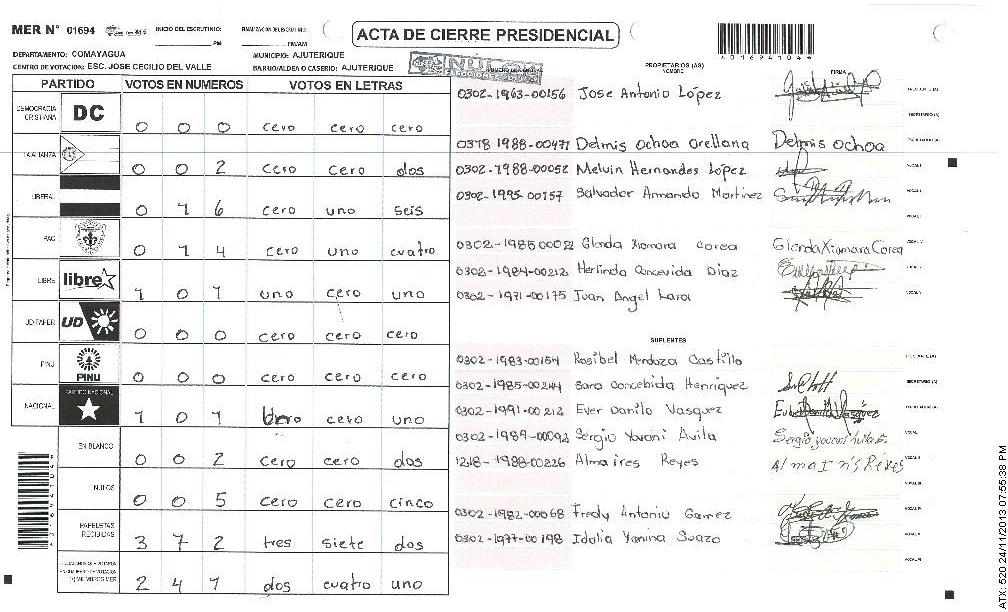 MER N° 01694 INICIO DEL ESCRUTINIO: PM FINALIZACION DEL ESCRUTINIO: PM/AM
ACTA DE CIERRE PRESIDENCIAL
DEPARTAMENTO: COMAYAGUA MUNICIPIO: AJUTERIQUE
CENTRO DE VOTACION: ESC. JOSE CECILIO DEL VALLE BARRIO/ALDEA O CASERIO: AJUTERIQUE
*01694104*
PARTIDO VOTOS EN NUMEROS VOTOS EN LETRAS
DEMOCRACIA CRISTIANA DC 0 0 0 cero cero cero
LA ALIANZA 0 0 2 cero cero dos
LIBERAL 0 1 6 cero uno seis
PAC 0 1 4 cero uno cuatro
LIBRE libre 1 0 1 uno cero uno
UD-FAPER UD 0 0 0 cero cero cero
PINU PINU 0 0 0 cero cero cero
NACIONAL PARTIDO NACIONAL 1 0 1 cero uno
EN BLANCO 0 0 2 cero cero dos
NULOS 0 0 5 cero cero cinco
PAPELETAS RECIBIDAS 3 7 2 tres siete dos
2 4 1 dos cuatro uno
PROPIETARIOS (AS)
NOMBRE FIRMA
0302-1963-00156 Jose Antonio López
0318 1988-00471 Delmis Ochoa Orellana Delmis Ochoa
0302-1988-00052 Melvin Hernandes López
0302-1995-00157 Salvador Armando Martinez
0302-1985 00022 Glenda Xiomara Corea Glenda Xiomara Corea
0302-1984-00212 Herlinda Concevida Diaz
0302-1971-00175 Juan Angel Lara
SUPLENTES
0302-1983-00154 Rosibel Mendoza Castillo
0302-1985-00244 Sara Concebida Henriquez
0302-1991-00212 Ever Danilo Vasquez
0302-1989-00092 Sergio Yovani Avila
1218-1988-00226 Alma ires Reyes
0302-1982-00068 Fredy Antonio Gamez
0302-1977-00198 Idalia Yanina Suazo
ATX: 520 24/11/2013 07:55:38 PM